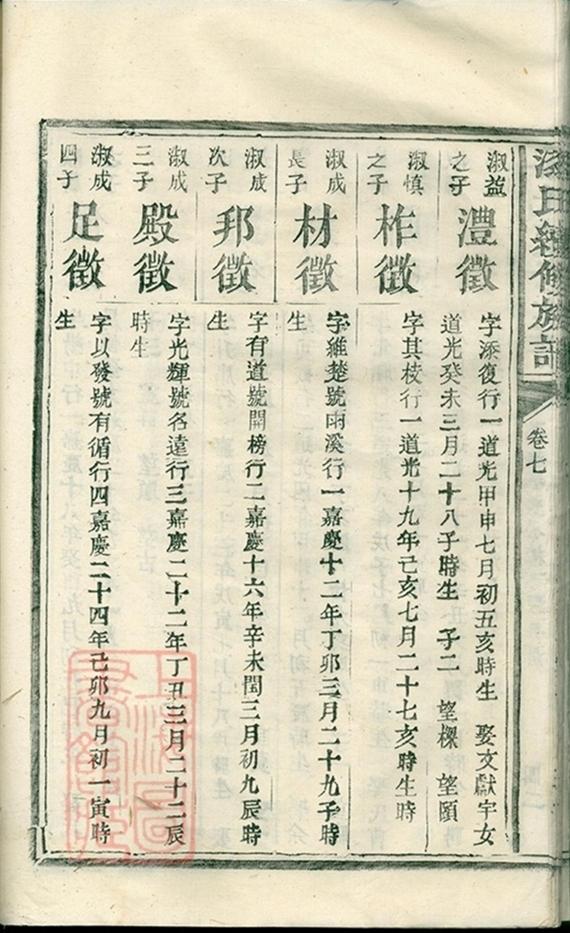 氏續修族譜
卷七
淑益
之子
澧徵
字添復行一道光甲申七月初五亥時生 娶文獻宇女
道光癸未三月二十八子時生 子二 望樑 望頤
淑慎
之子
柞徵
字其枝行一道光十九年己亥七月二十七亥時生時
淑成
長子
材徵
字維楚號雨溪行一嘉慶十二年丁卯三月二十九子時
生
淑成
次子
邦徵
字有道號開榜行二嘉慶十六年辛未閏三月初九辰時
生
淑成
三子
殿徵
字光輝號名遠行三嘉慶二十二年丁丑三月二十二辰
時生
淑成
四子
足徵
字以發號有循行四嘉慶二十四年己卯九月初一寅時
生
上海圖
書館藏